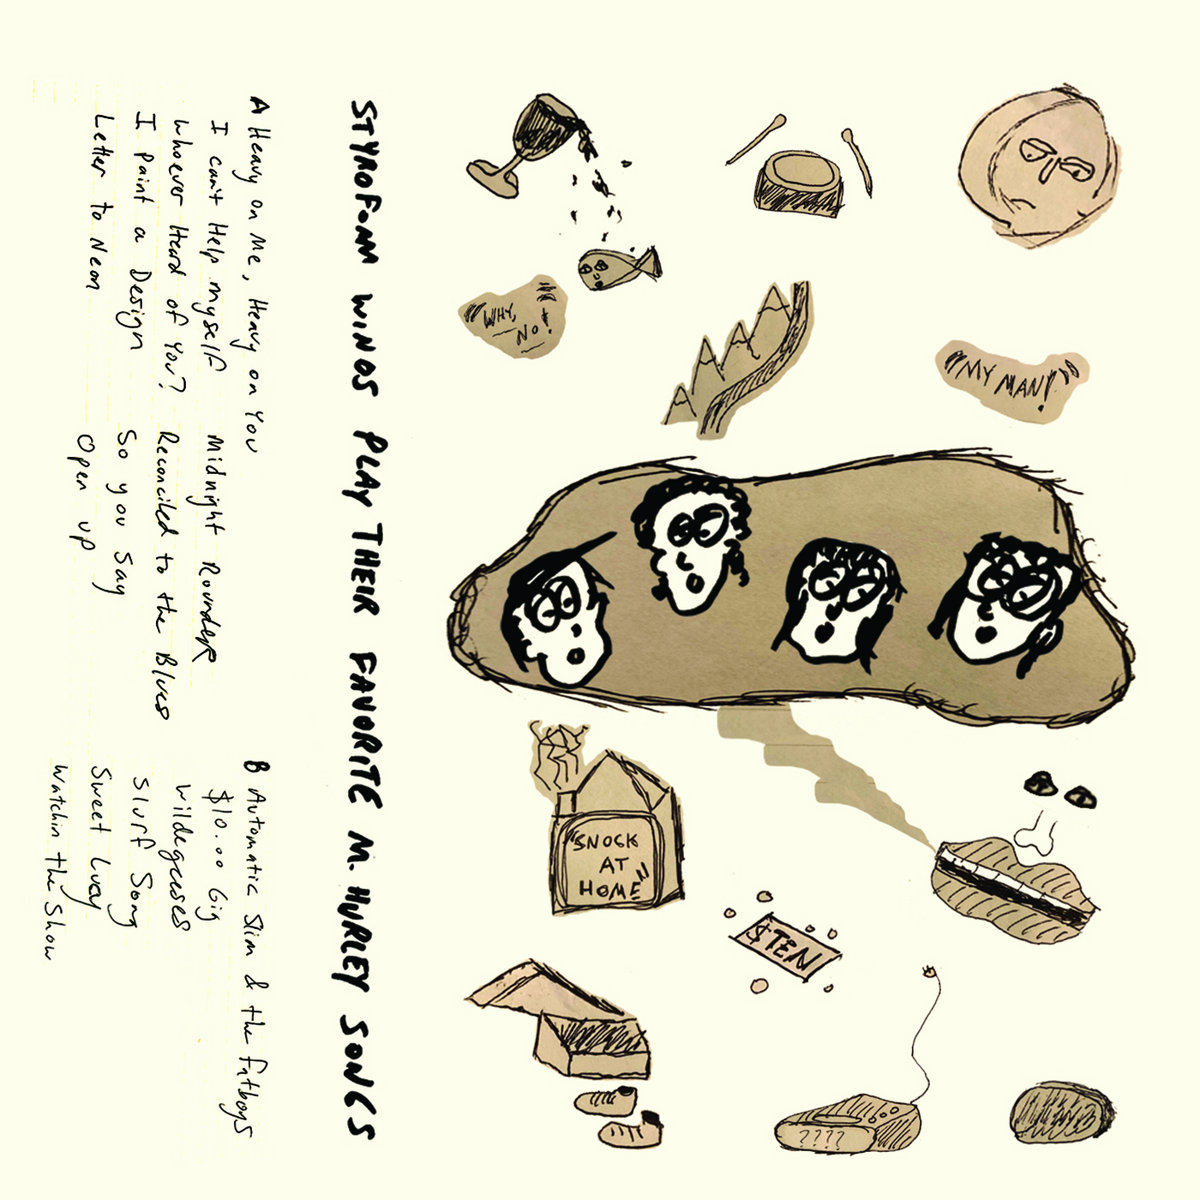 STYROFOAM WINOS PLAY THEIR FAVORITE M. HURLEY SONGS
A Heavy on Me, Heavy on You
I can't Help myself
Whoever Heard of You?
I Paint a Design
Letter to Neon
Midnight Rounder
Reconciled to the Blues
So you Say
Open up
B Automatic Slim & the Fatboys
$10.00 Gig
Wildegeeses
Slurf Song
Sweet Lucy
Watchin the Show
"WHY, NO!"
"MY MAN!"
"SNOCK
AT
HOME"
$TEN
????